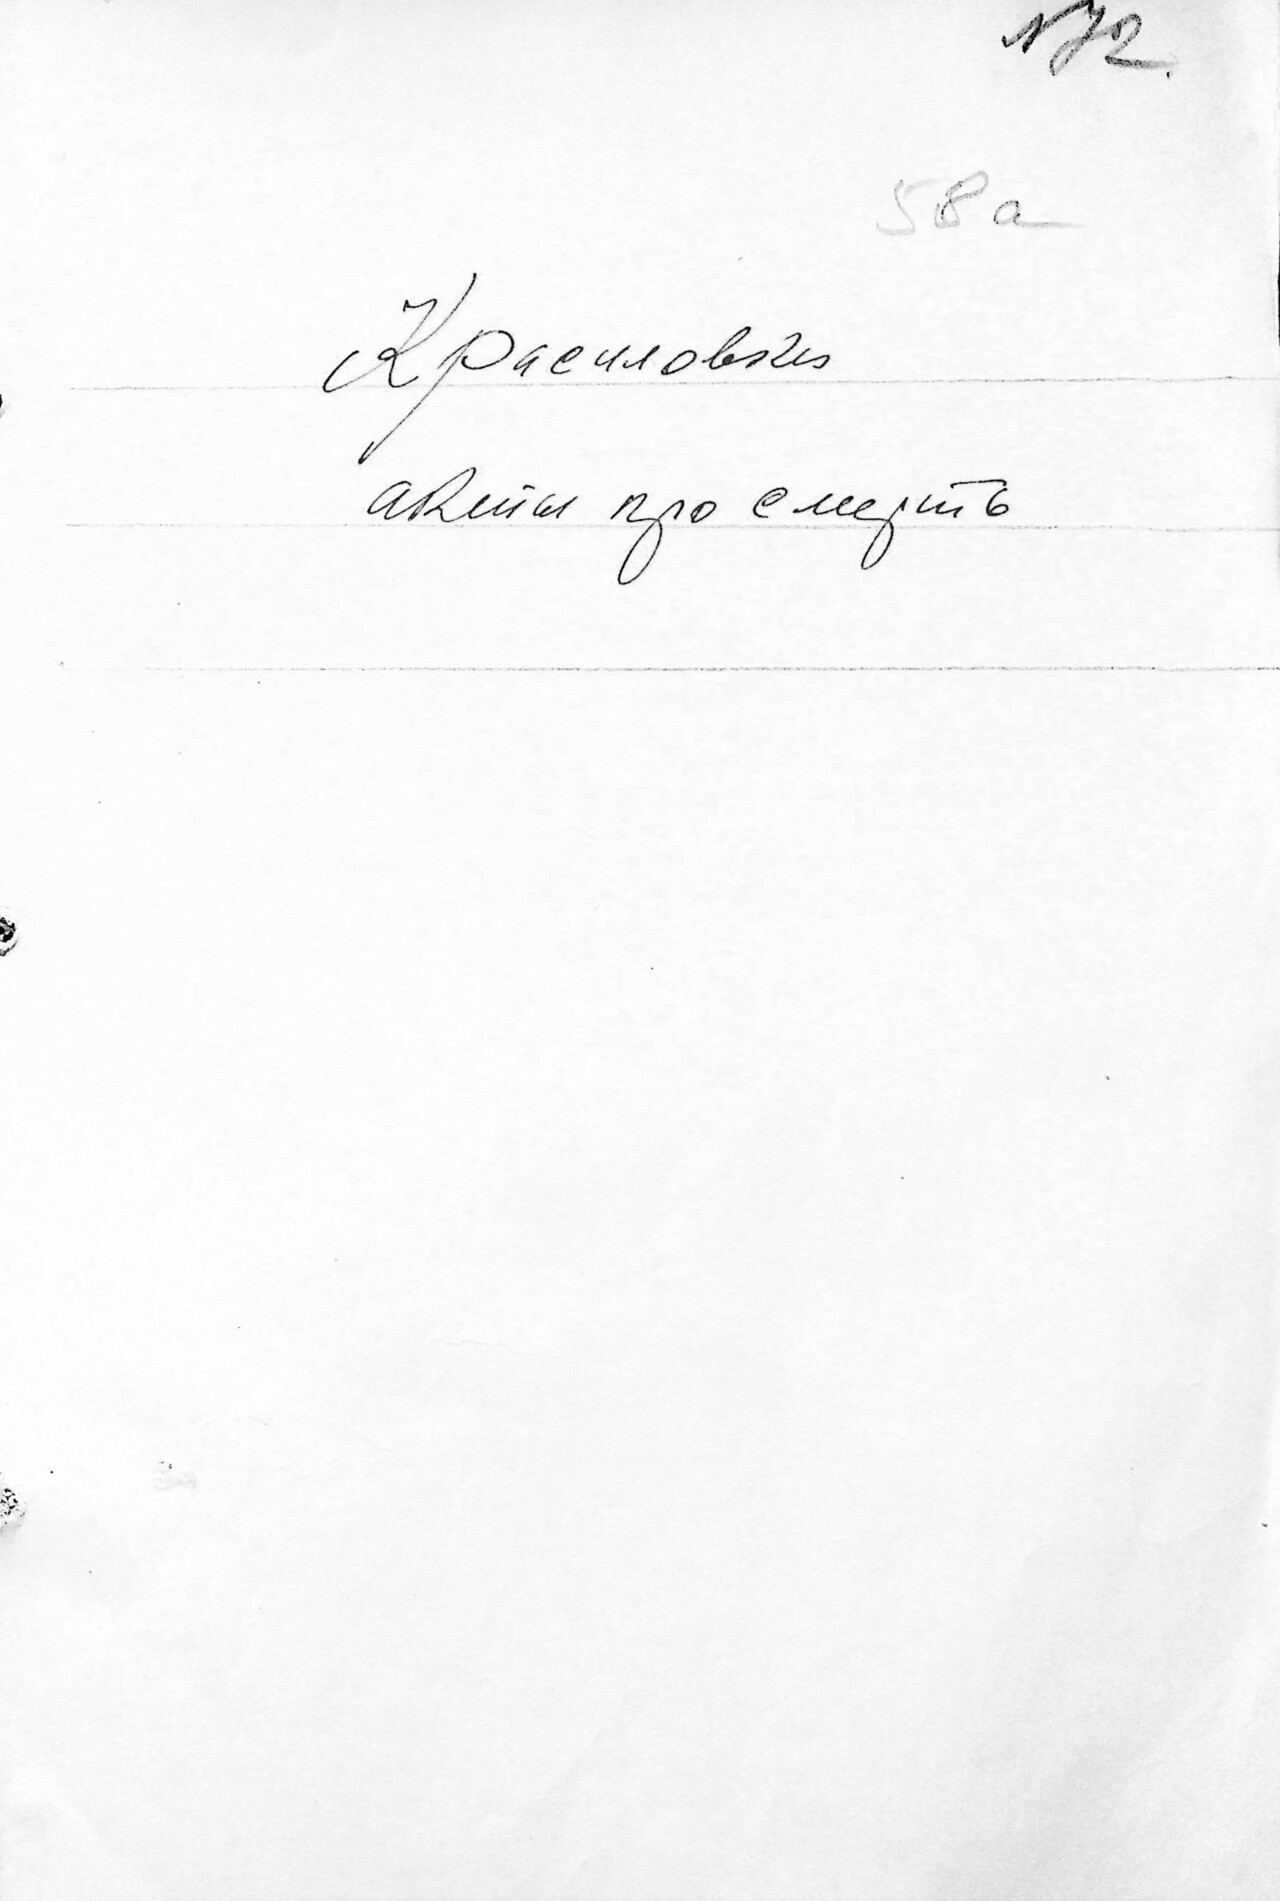 172.
58а
Красиловка
акти про смерть